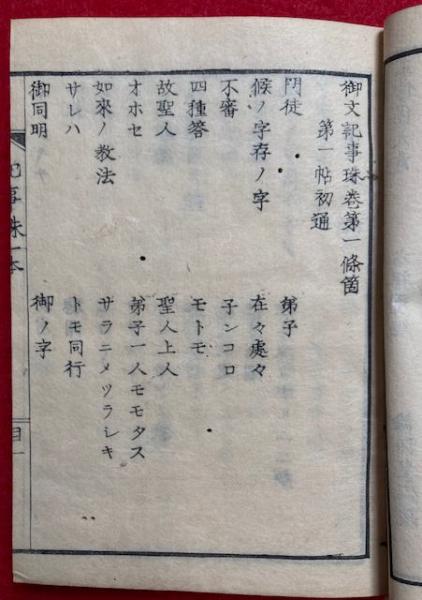 御文記事珠巻第一條箇
第一帖初通
門徒　弟子
候ノ字存ノ字　在々處々
不審　子ンコロ
四種答　モトモ
故聖人　聖人上人
オホセ　弟子一人モモタス
如來ノ教法　サラニメツラシキ
サレハ　トモ同行
御同明　御ノ字
記事珠一本　目一